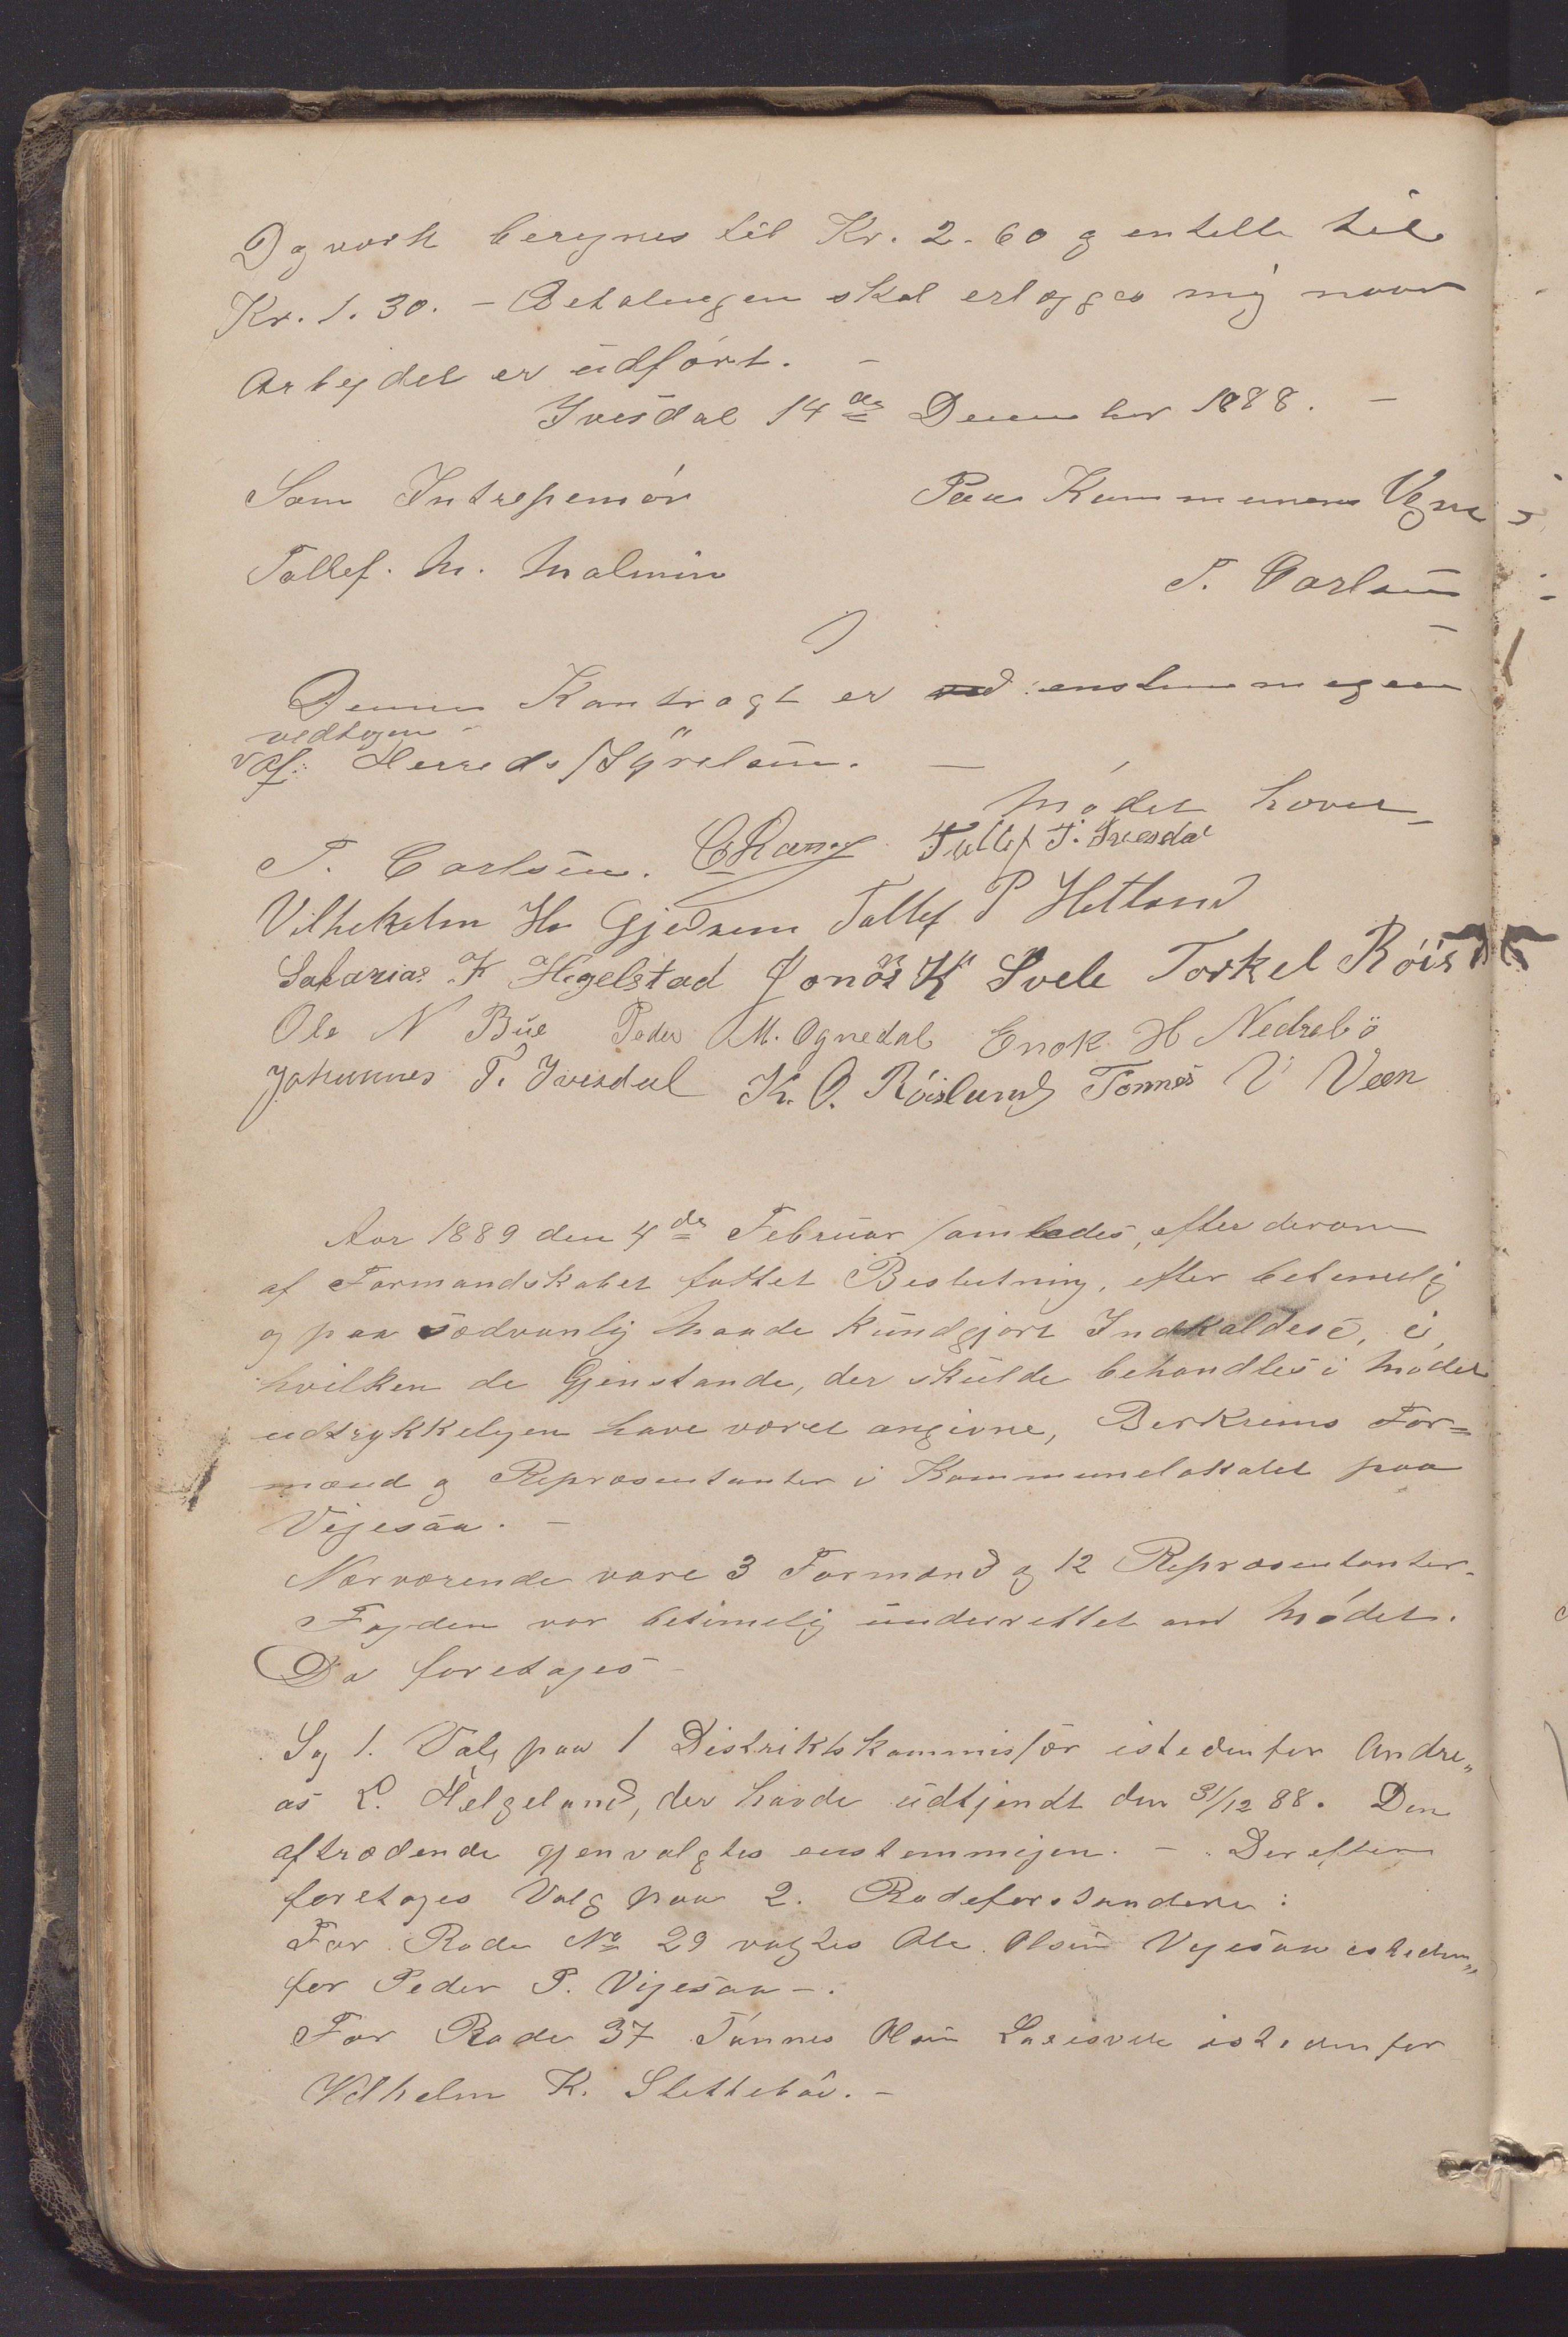 Dagværk beregnes til Kr. 2.60 og enkelte til
Kr. 1.30. – Betalingen skal erlægges mig naar
Arbejdet er udført. –
Ivesdal 14de December 1888. –
Som Intrepenør Paa Kommunens Vegne
Tollef. M. Malmin T. Carlsen
Denne Kontragt er enstemmigen
vedtagen
af Herreds/Styrelsen. –
Mødet hævet –
T. Carlsen. Tollef T. Ivesdal
Vilhelm H. Gjedrem Tollef P Hetland
Sakarias K Hegelstad Jonas K Svele Torkel Røis
Ole N Bue Peder M. Ognedal Enok H Nedrebø
Johannes T. Ivesdal K. O. Røislund Tønnes V Veen
Aar 1889 den 4de Februar samledes, efter derom
af Formandskabet fattet Beslutning, efter betimelig
og paa sædvanlig Maade kundgjort Indkaldese, i
hvilken de Gjenstande, der skulde behandles i Mødet
udtrykkelgen have været angivne, Birkrems For=
mænd og Repræsentanter i Kommunelokalet paa
Vigesaa. –
Nærværende vare 3 Formænd og 12 Repræsentanter.
Fogden var betimelig underrettet om Mødet.
Da foretages
Sag 1. Valg paa 1 Distriktskommissær istedenfor Andre„
as L. Helgeland, der havde udtjendt den 31/12 88. Den
aftrædende gjenvalgtes enstemmigen. – Derefter
foretages Valg paa 2. Rodeforstandere:
For Rode No 29 valgtes Ole Olsen Vigesaa isteden„
for Peder P. Vigesaa –.
For Rode 37 Tønnes Olsen istedenfor
Vilhelm K. Slettebø. –